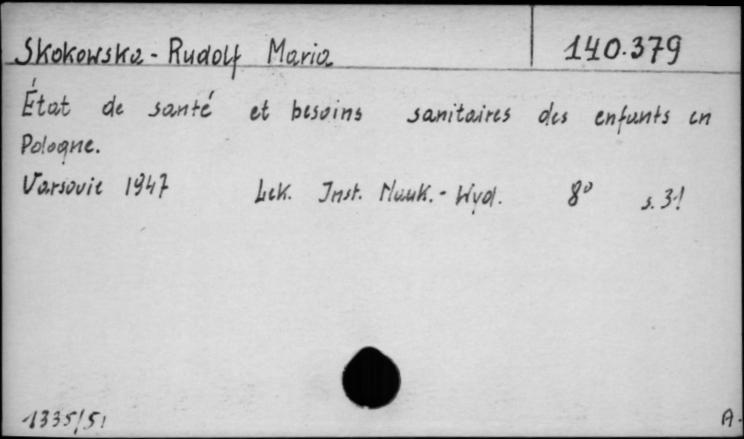 Skokowska-Rudolf Maria 140.379
État de santé et besoins sanitaires des enfants en
Pologne.
Varsovie 1947 Lek. Inst. Nauk.-Wyd. 8° s. 31
1335/51 A.